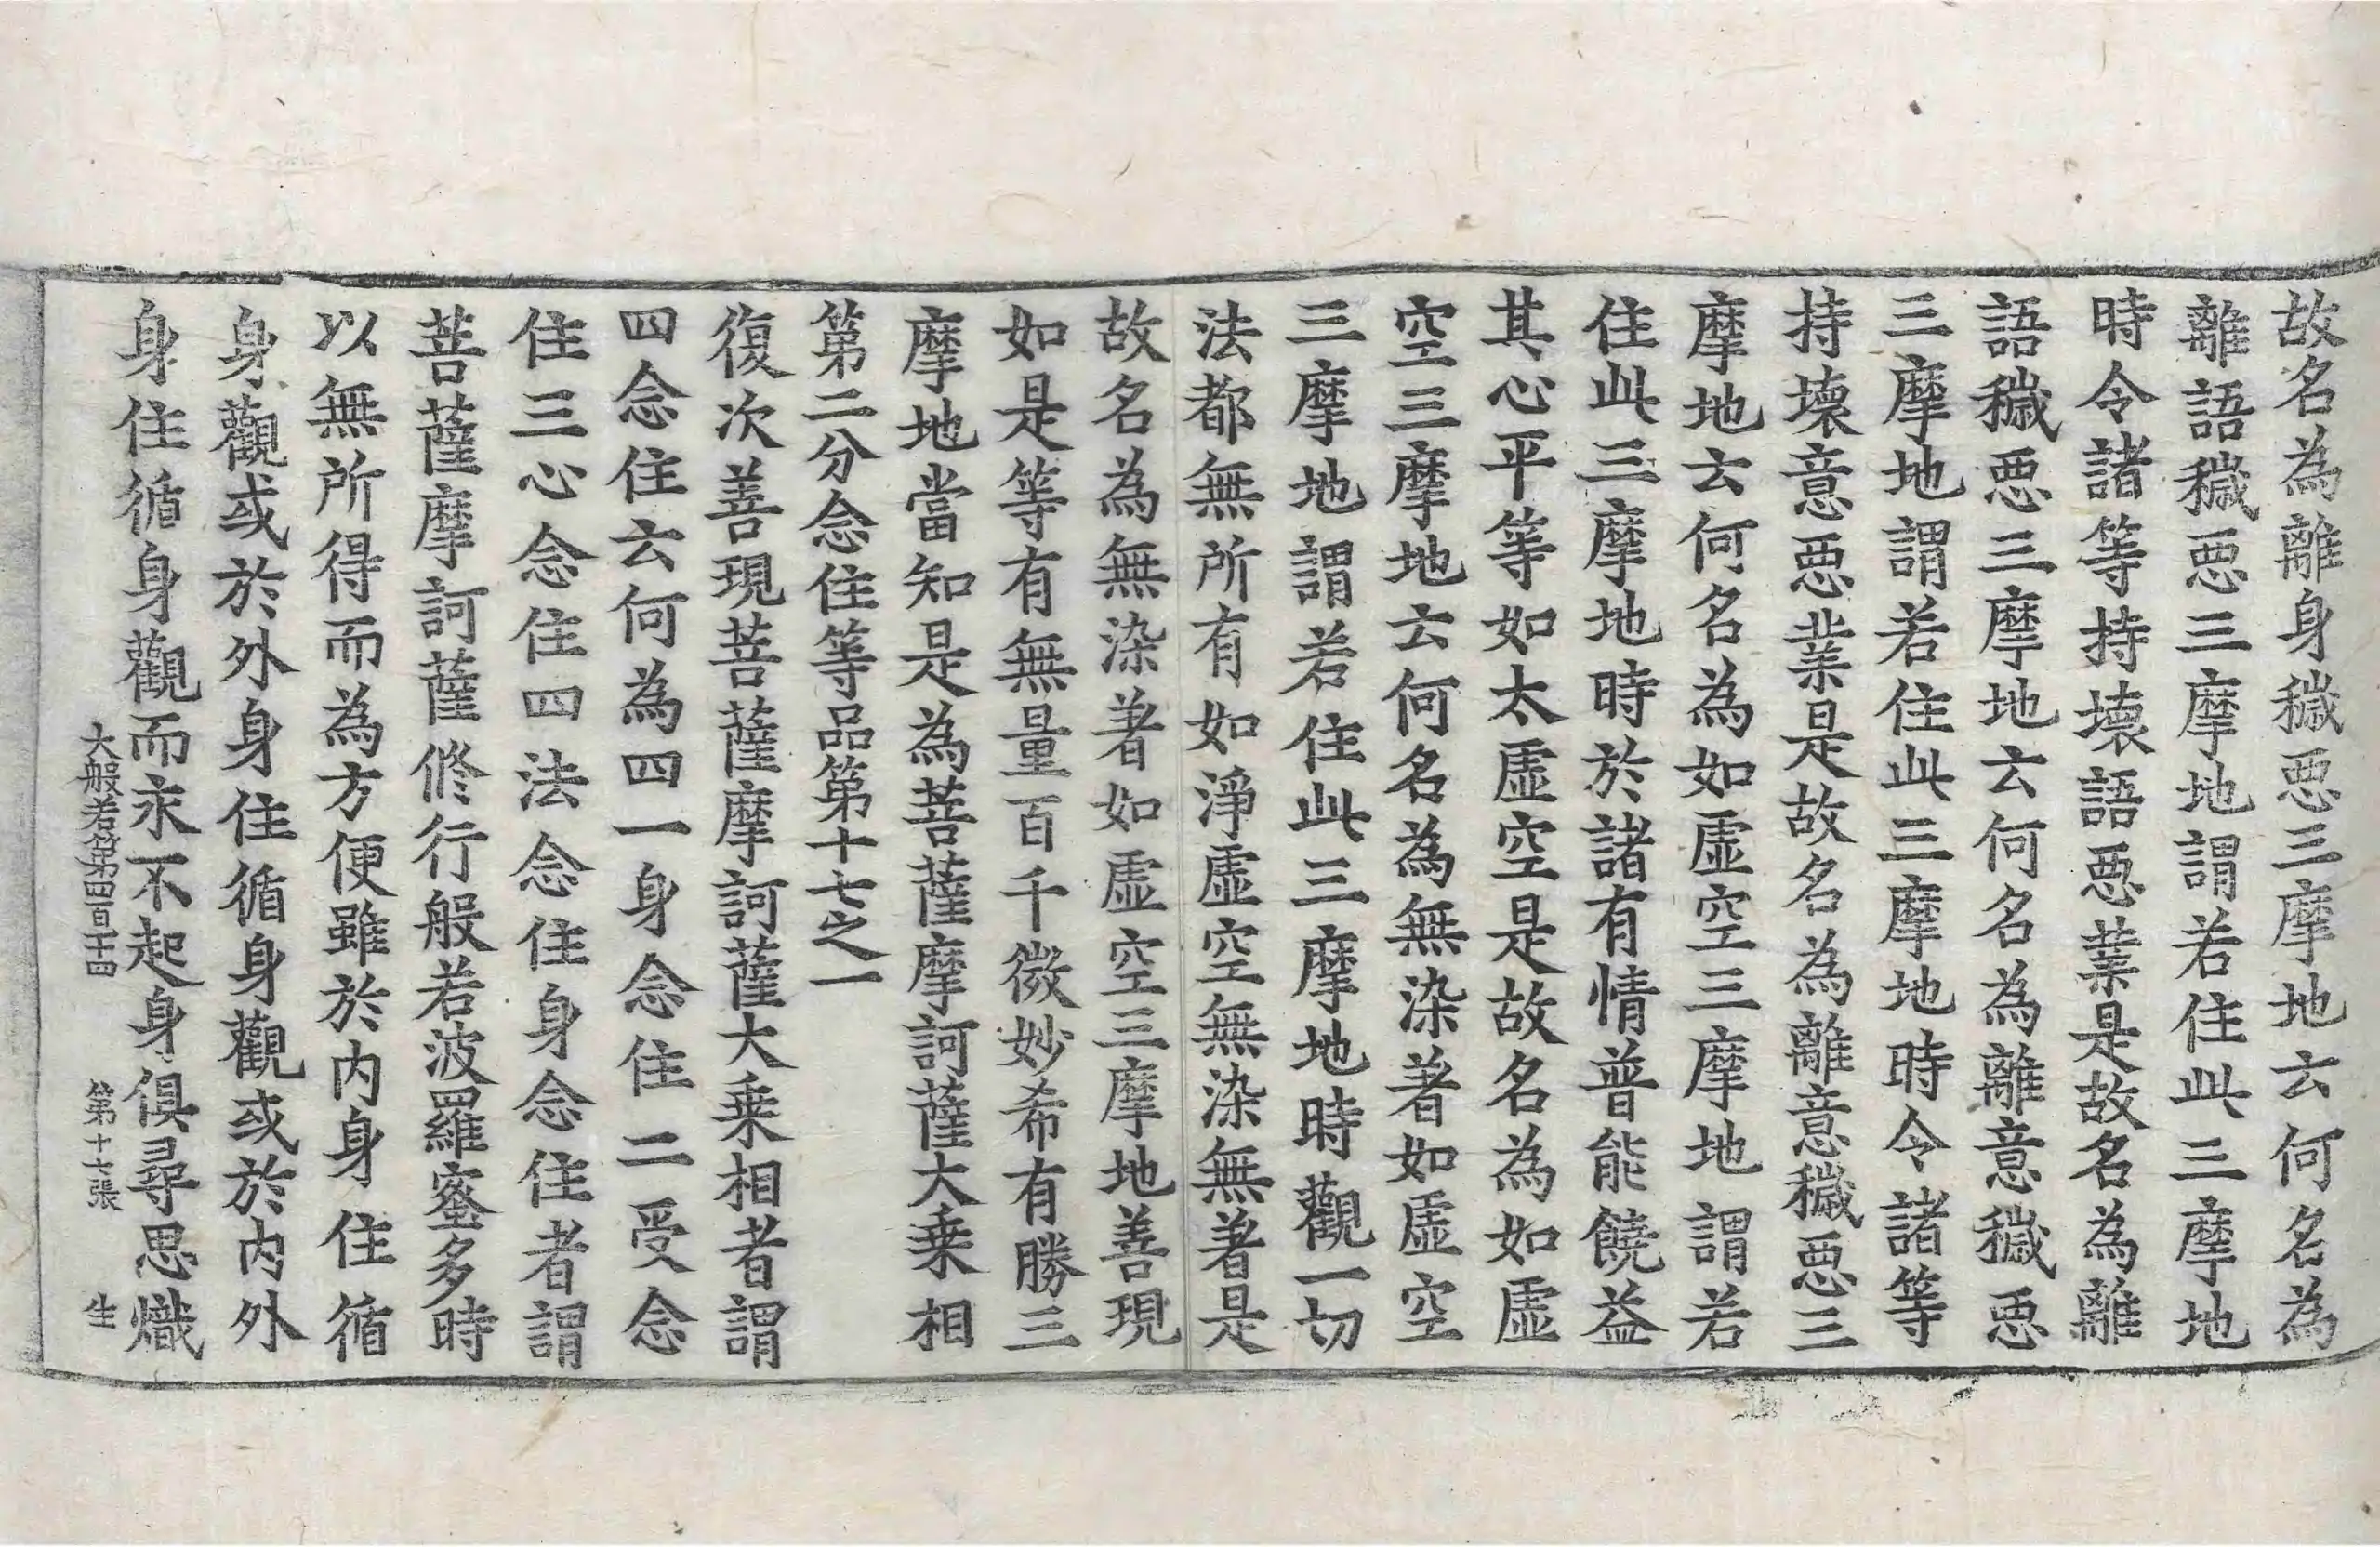 故名為離身穢惡三摩地云何名為
離語穢惡三摩地謂若住此三摩地
時令諸等持壞語惡業是故名為離
語穢惡三摩地云何名為離意穢惡
三摩地謂若住此三摩地時令諸等
持壞意惡業是故名為離意穢惡三
摩地云何名為如虛空三摩地謂若
住此三摩地時於諸有情普能饒益
其心平等如太虛空是故名為如虛
空三摩地云何名為無染著如虛空
三摩地謂若住此三摩地時觀一切
法都無所有如淨虛空無染無著是
故名為無染著如虛空三摩地善現
如是等有無量百千微妙希有勝三
摩地當知是為菩薩摩訶薩大乘相
第二分念住等品第十七之一
復次善現菩薩摩訶薩大乘相者謂
四念住云何為四一身念住二受念
住三心念住四法念住身念住者謂
菩薩摩訶薩修行般若波羅蜜多時
以無所得而為方便雖於內身住循
身觀或於外身住循身觀或於內外
身住循身觀而永不起身俱尋思熾
大般若第四百十四 第十七張 生